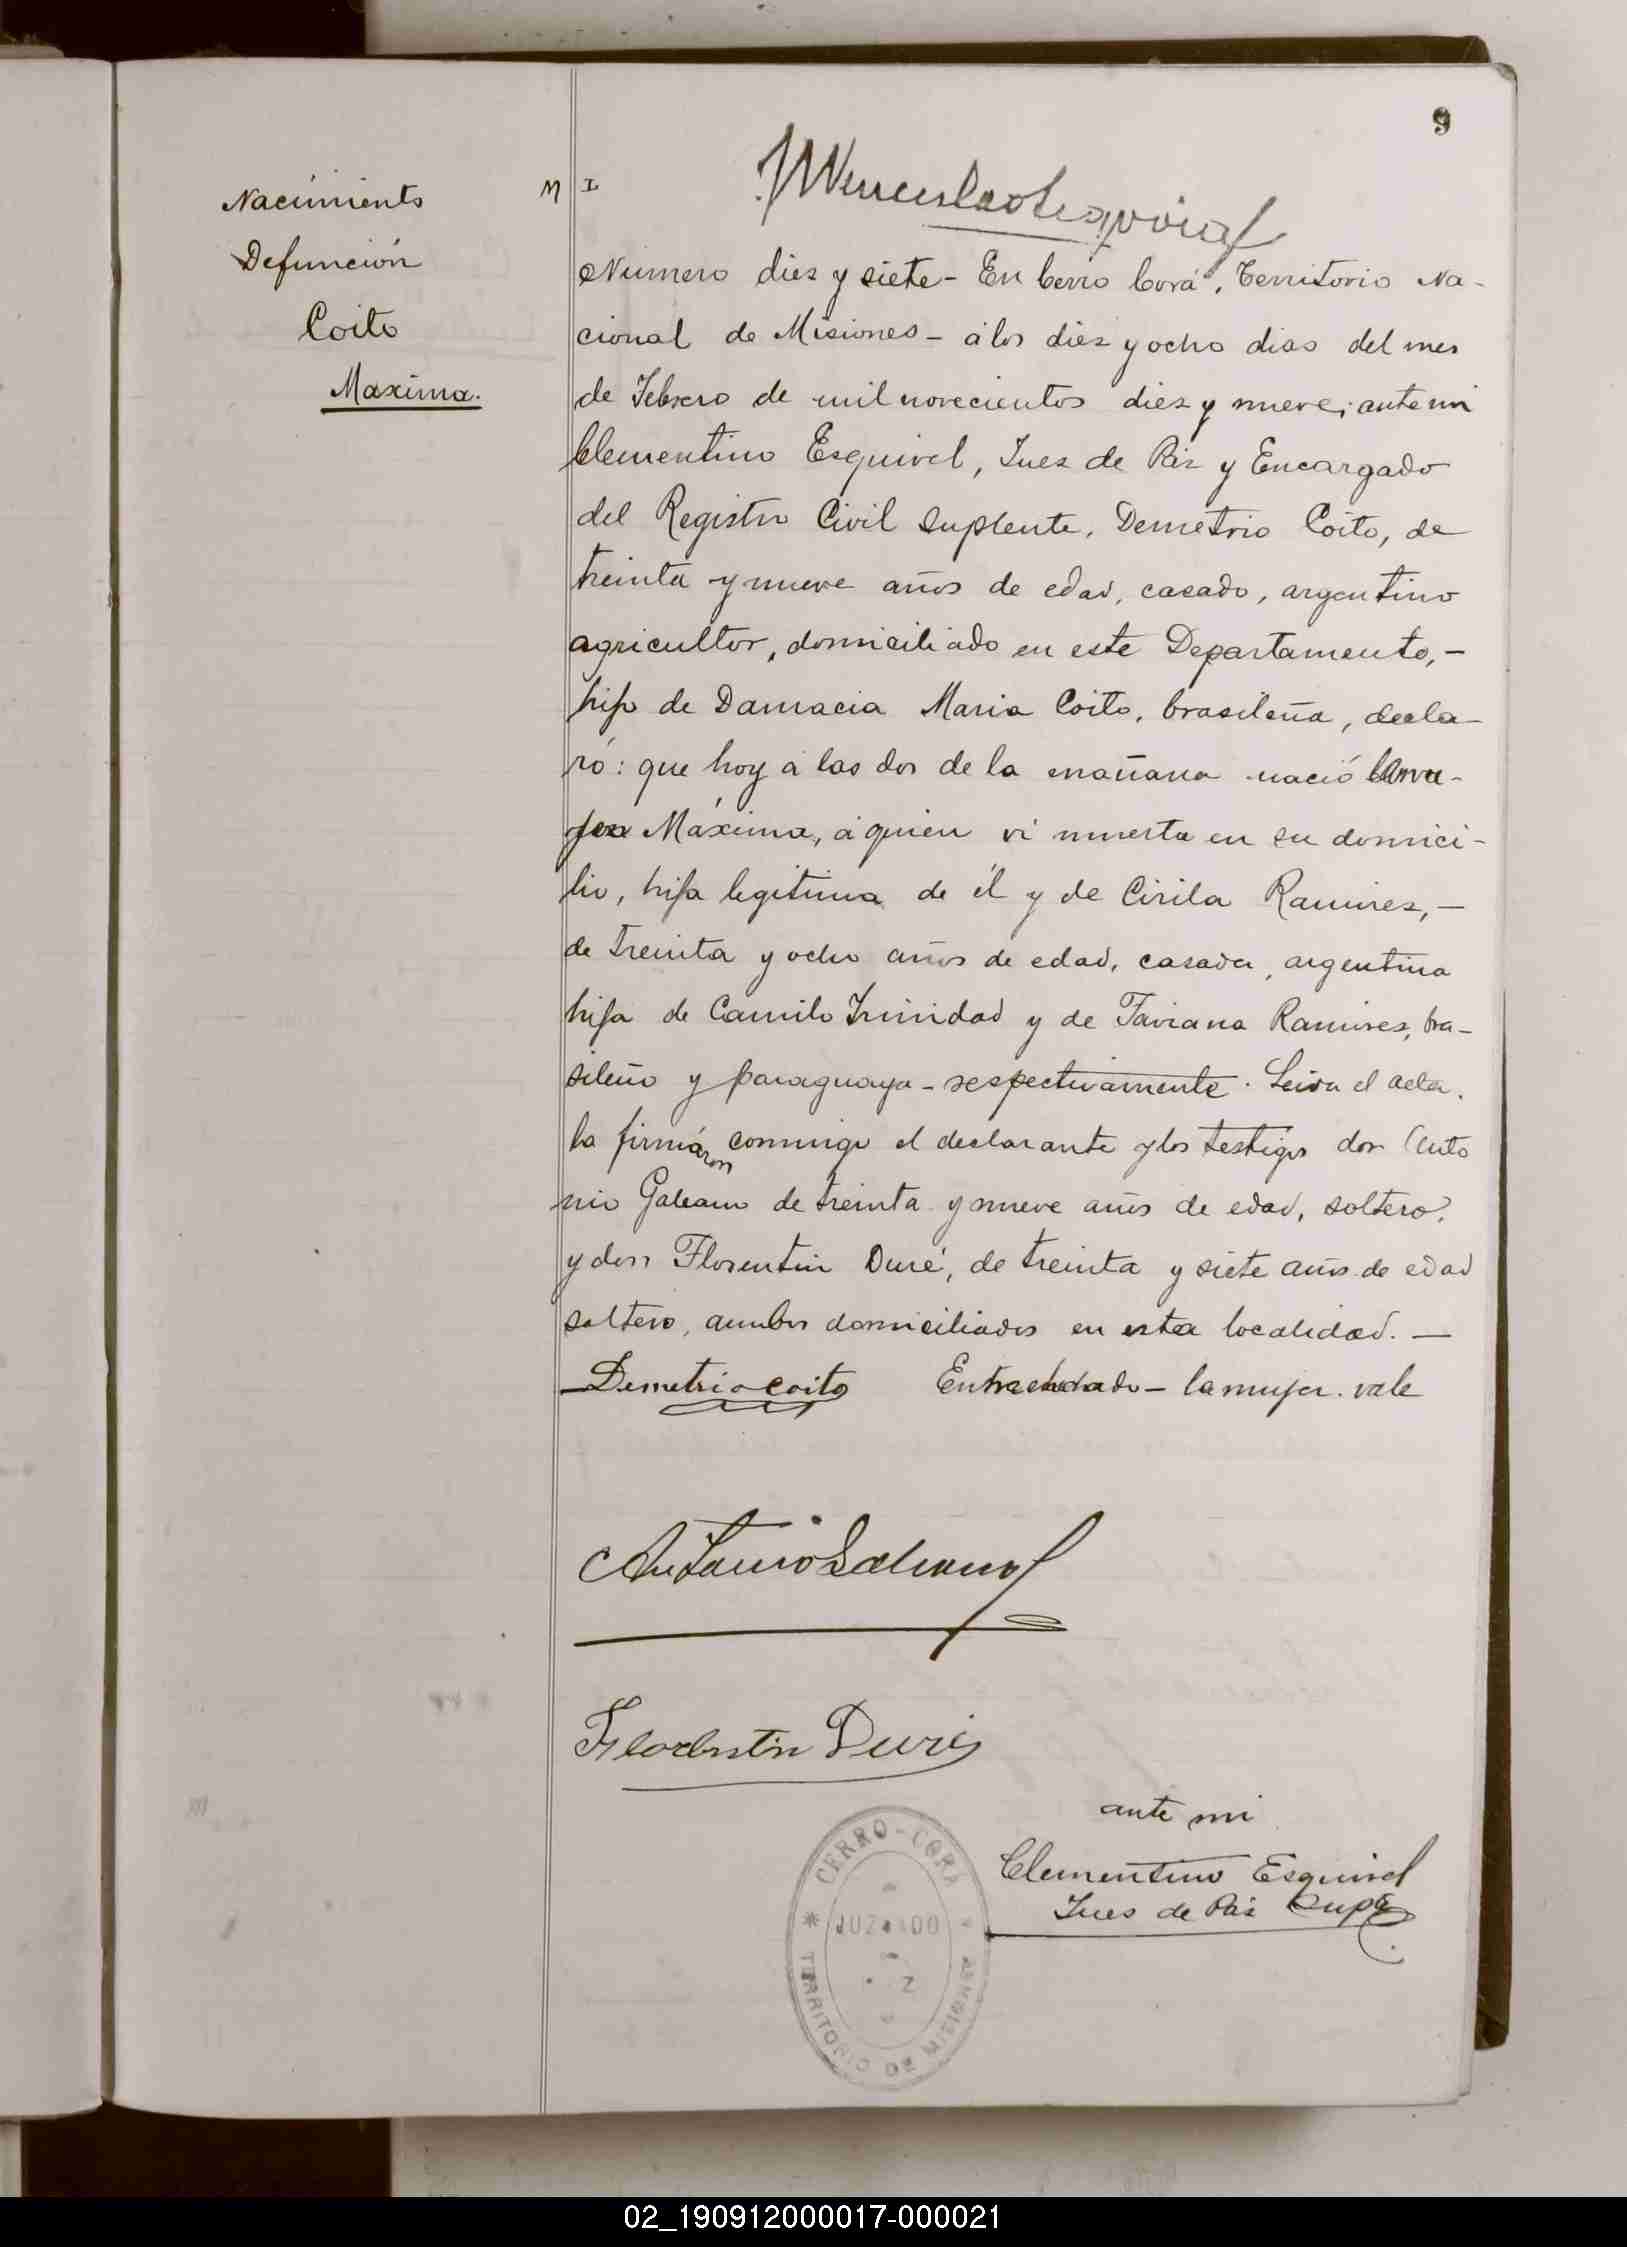 9
Nacimiento
Defunción
Coito
Maxima.
M I
Numero diez y siete - En Cerro Corá, Territorio Na-
cional de Misiones - á los diez y ocho dias del mes
de Febrero de mil novecientos diez y nueve; ante mi
Clementino Esquivel, Juez de Paz y Encargado
del Registro Civil Suplente, Demetrio Coito, de
treinta y nueve años de edad, casado, argentino
agricultor, domiciliado en este Departamento, -
hijo de Damacia Maria Coito, brasileña, decla-
ró: que hoy á las dos de la mañana nació la mu-
jer Máxima, á quien vi muerta en su domici-
lio, hija legitima de él y de Cirila Ramires, -
de treinta y ocho años de edad, casada, argentina
hija de Camilo Trinidad y de Faviana Ramires, bra-
sileño y paraguaya - respectivamente. Leida el acta.
la firmáron conmigo el declarante y los testigos don Anto
nio Galeano de treinta y nueve años de edad, soltero,
y don Florentin Duré, de treinta y siete años de edad
soltero, ambos domiciliados en esta localidad. -
Demetrio Coito Entrelineado - la mujer. vale
Antonio Galeano
Florentin Duré
ante mi
Clementino Esquivel
Jues de Paz Supte
CERRO-CORÁ
JUZGADO
TERRITORIO DE MISIONES
02_190912000017-000021